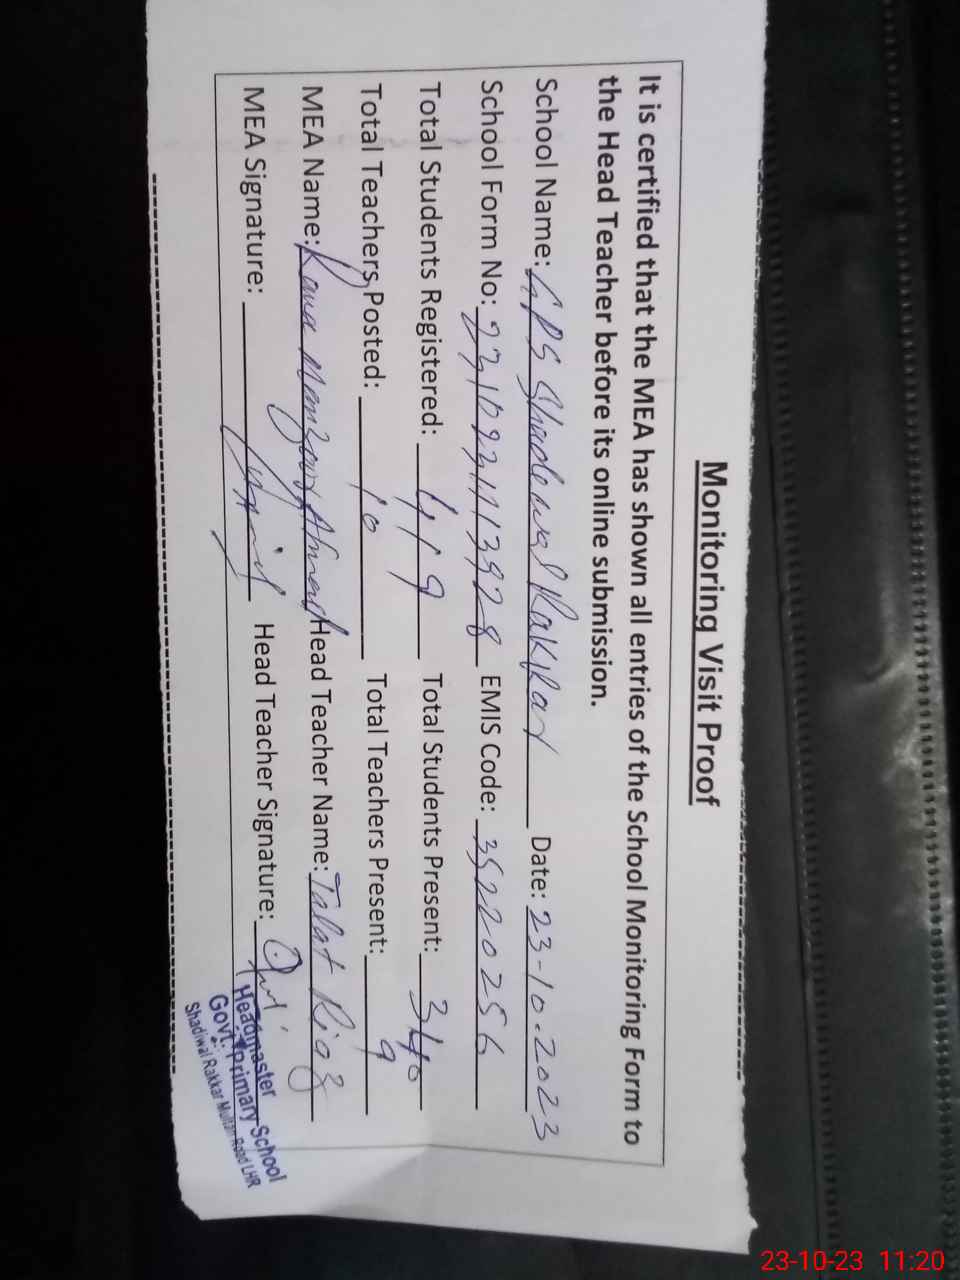 Monitoring Visit Proof
It is certified that the MEA has shown all entries of the School Monitoring Form to
the Head Teacher before its online submission.
School Name: GPS Shadewal Rakkar Date: 23-10-2023
School Form No: EMIS Code: 35220256
Total Students Registered: 419 Total Students Present: 340
Total Teachers Posted: 10 Total Teachers Present: 9
MEA Name: Rana Manzoor Ahmed Head Teacher Name: Talat Riaz
MEA Signature: Head Teacher Signature:
Headmaster
Govt. Primary School
Shadiwal Rakkar Multan Road LHR
23-10-23 11:20